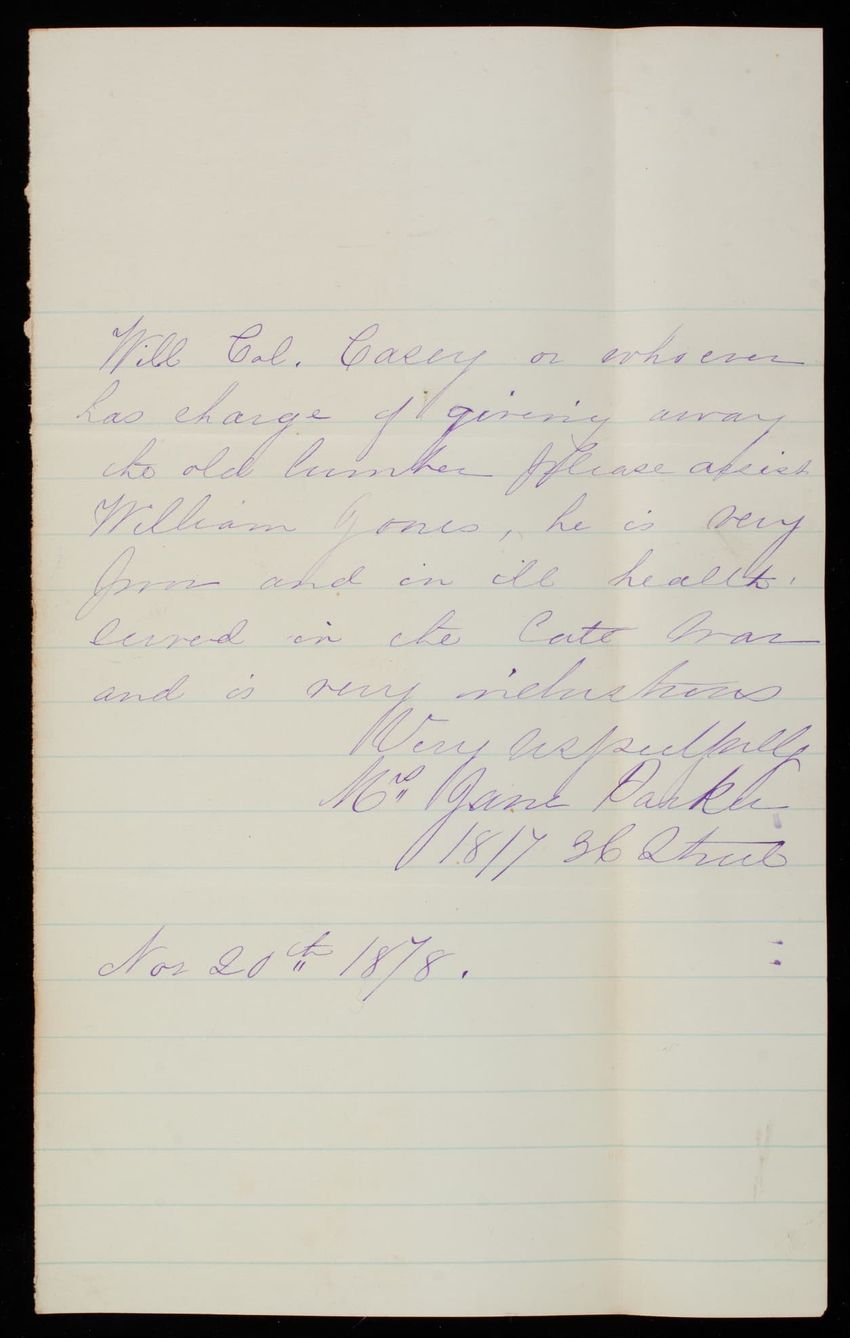 Will Col. Casey or whoever
has charge of giving away
the old lumber please assist
William Jones, he is very
poor and in ill health.
served in the late war
and is very industrious
Very respectfully
Mrs Jane Parker
1817 H Street
Nov 20th 1878.